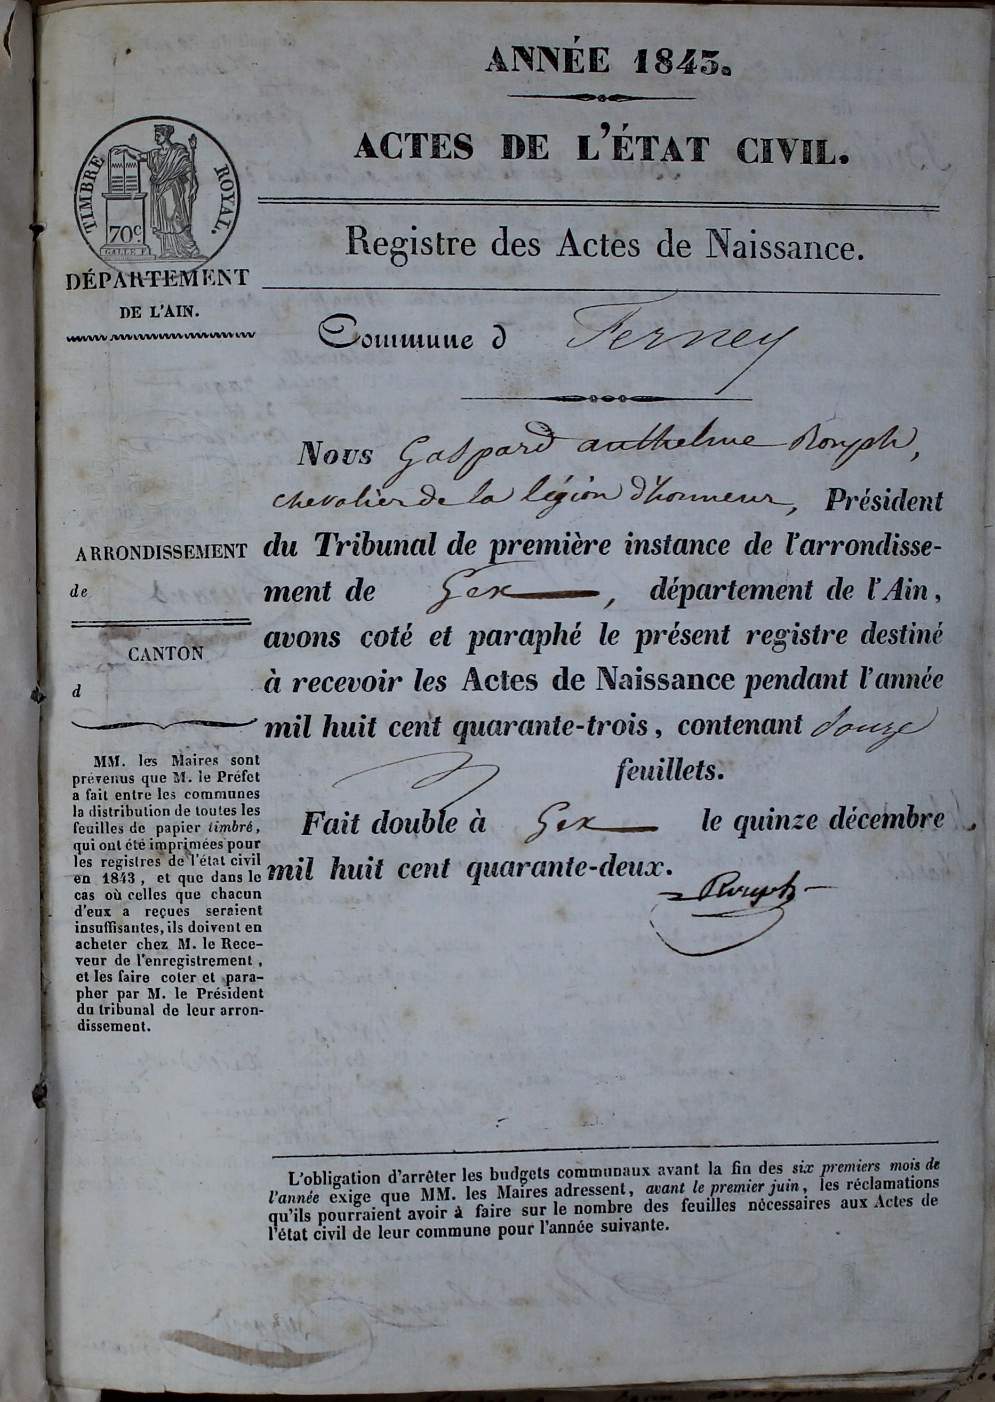 ANNÉE 1843.
ACTES DE L'ÉTAT CIVIL.
TIMBRE ROYAL.
70c
DÉPARTEMENT
DE L'AIN.
Registre des Actes de Naissance.
Commune d Ferney
Nous Gaspard anthelme
chevalier de la légion d'honneur, Président
du Tribunal de première instance de l'arrondisse-
ment de Gex, département de l'Ain,
avons coté et paraphé le présent registre destiné
à recevoir les Actes de Naissance pendant l'année
mil huit cent quarante-trois, contenant douze
feuillets.
Fait double à Gex le quinze décembre
mil huit cent quarante-deux.
ARRONDISSEMENT
de
CANTON
d
MM. les Maires sont
prévenus que M. le Préfet
a fait entre les communes
la distribution de toutes les
feuilles de papier timbré,
qui ont été imprimées pour
les registres de l'état civil
en 1843, et que dans le
cas où celles que chacun
d'eux a reçues seraient
insuffisantes, ils doivent en
acheter chez M. le Rece-
veur de l'enregistrement,
et les faire coter et para-
pher par M. le Président
du tribunal de leur arron-
dissement.
L'obligation d'arrêter les budgets communaux avant la fin des six premiers mois de
l'année exige que MM. les Maires adressent, avant le premier juin, les réclamations
qu'ils pourraient avoir à faire sur le nombre des feuilles nécessaires aux Actes de
l'état civil de leur commune pour l'année suivante.